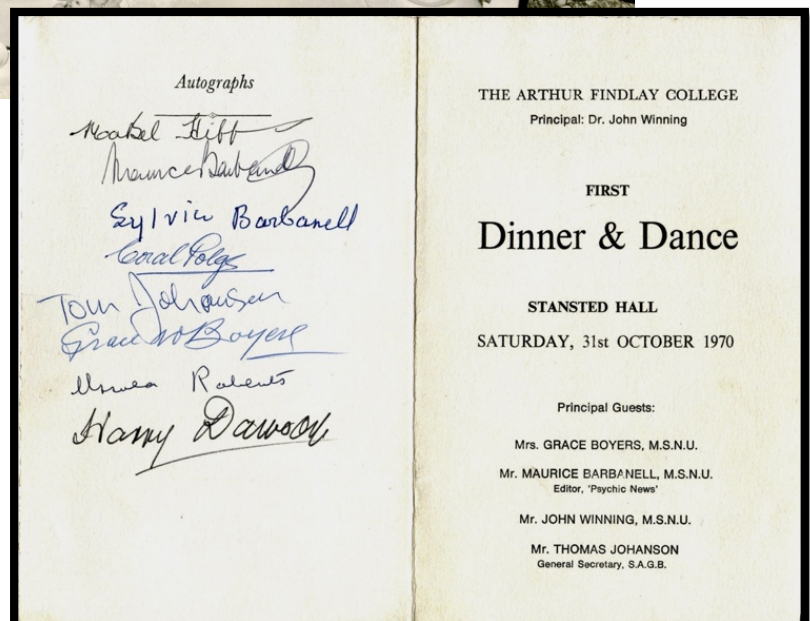 Autographs
Maurice Barbanell
Sylvia Barbanell
Coral Polge
Tom Johanson
Grace Boyers
Ursula Roberts
Harry Dawson
THE ARTHUR FINDLAY COLLEGE
Principal: Dr. John Winning
FIRST
Dinner & Dance
STANSTED HALL
SATURDAY, 31st OCTOBER 1970
Principal Guests:
Mrs. GRACE BOYERS, M.S.N.U.
Mr. MAURICE BARBANELL, M.S.N.U.
Editor, 'Psychic News'
Mr. JOHN WINNING, M.S.N.U.
Mr. THOMAS JOHANSON
General Secretary, S.A.G.B.